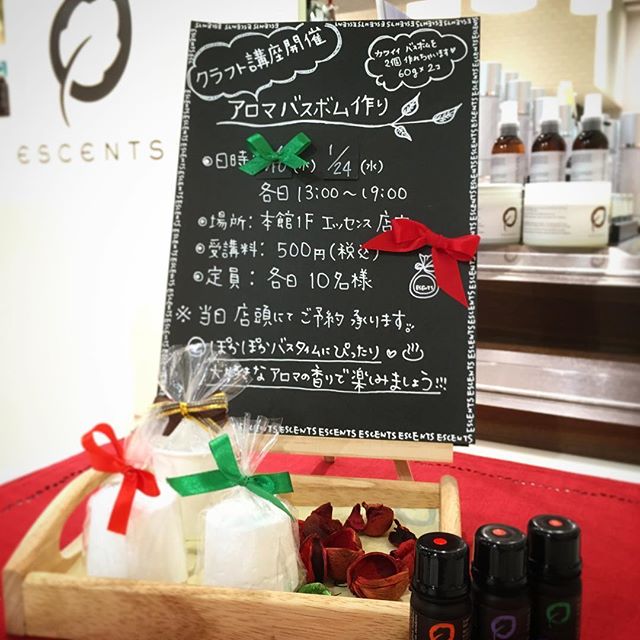 ESCENTS
クラフト講座開催
カワイイ バスボムを
2個 作れちゃいます♥
60g×2コ
アロマ バスボム作り
●日時 (水) 1/24 (水)
各日 13:00〜19:00
●場所: 本館1F エッセンス 店
●受講料: 500円(税込)
●定員: 各日 10名様
ESCENTS
※ 当日 店頭にて ご予約 承ります。
ぽっかぽかバスタイムにぴったり♥
大好きなアロマの香りで楽しみましょう!!!
ESCENTS ESCENTS ESCENTS ESCENTS ESCENTS